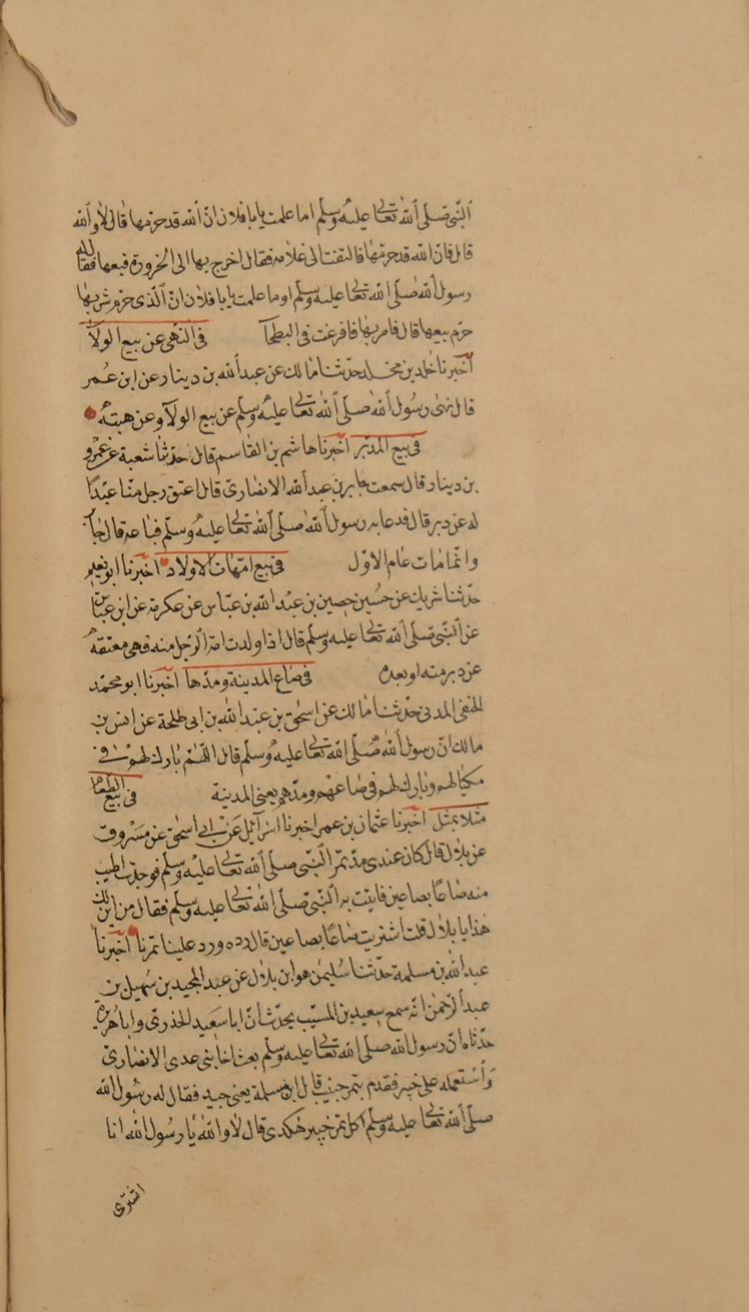 النبي صلى الله تعالى عليه وسلم اما علمت يابا فلان ان الله قد حرمها قال لا والله
قال فان الله قد حرمها فالتفت الى غلامه فقال اخرج بها الى الحزورة فبعها فقال له
رسول الله صلى الله تعالى عليه وسلم اوما علمت يابا فلان ان الذي حرم شربها
حرم بيعها قال فامر بها فافرغت في البطحآ في النهى عن بيع الولآ
اخبرنا خلد بن مخلد حدثنا مالك عن عبد الله بن دينار عن ابن عمر
قال نهى رسول الله صلى الله تعالى عليه وسلم عن بيع الولآ وعن هبته
في بيع المدبر اخبرنا هاشم بن القاسم قال حدثنا شعبة عن عمرو
بن دينار قال سمعت جابر بن عبد الله الانصارى قال اعتق رجل منا عبدا
له عن دبر قال فدعا به رسول الله صلى الله تعالى عليه وسلم فباعه قال جابر
وانما مات عام الاول في بيع امهات الاولاد اخبرنا ابو نعيم
حدثنا شريك عن حسين بن عبد الله بن عباس عن عكرمة عن ابن عباس
عن النبي صلى الله تعالى عليه وسلم قال اذا ولدت امة الرجل منه فهى معتقة
عن دبر منه او بعده في صاع المدينة ومدها اخبرنا ابو محمد
الحنفى المدنى حدثنا مالك عن اسحق بن عبد الله بن ابى طلحة عن انس بن
مالك ان رسول الله صلى الله تعالى عليه وسلم قال اللهم بارك لهم في
مكيالهم وبارك لهم في صاعهم ومدهم يعنى المدينة في بيع الطعام
مثلا بمثل اخبرنا عثمان بن عمر اخبرنا اسرآئيل عن ابى اسحق عن مسروق
عن بلال قال كان عندى مد تمر النبي صلى الله تعالى عليه وسلم فوجدت اطيب
منه صاعا بصاعين فاتيت به النبي صلى الله تعالى عليه وسلم فقال من اين لك
هذا يا بلال قلت اشتريت صاعا بصاعين قال رده ورد علينا تمرنا اخبرنا
عبد الله بن مسلمة حدثنا سليمن هو ابن بلال عن عبد المجيد بن سهيل بن
عبد الرحمن انه سمع سعيد بن المسيب يحدث ان ابا سعيد الخدرى وابا هريرة
حدثاه ان رسول الله صلى الله تعالى عليه وسلم بعث اخا بنى عدى الانصارى
واستعمله على خيبر فقدم بتمر جنيب قال ابن مسلمة يعنى جيد فقال له رسول الله
صلى الله تعالى عليه وسلم اكل تمر خيبر هكذى قال لا والله يا رسول الله انا
اشترى